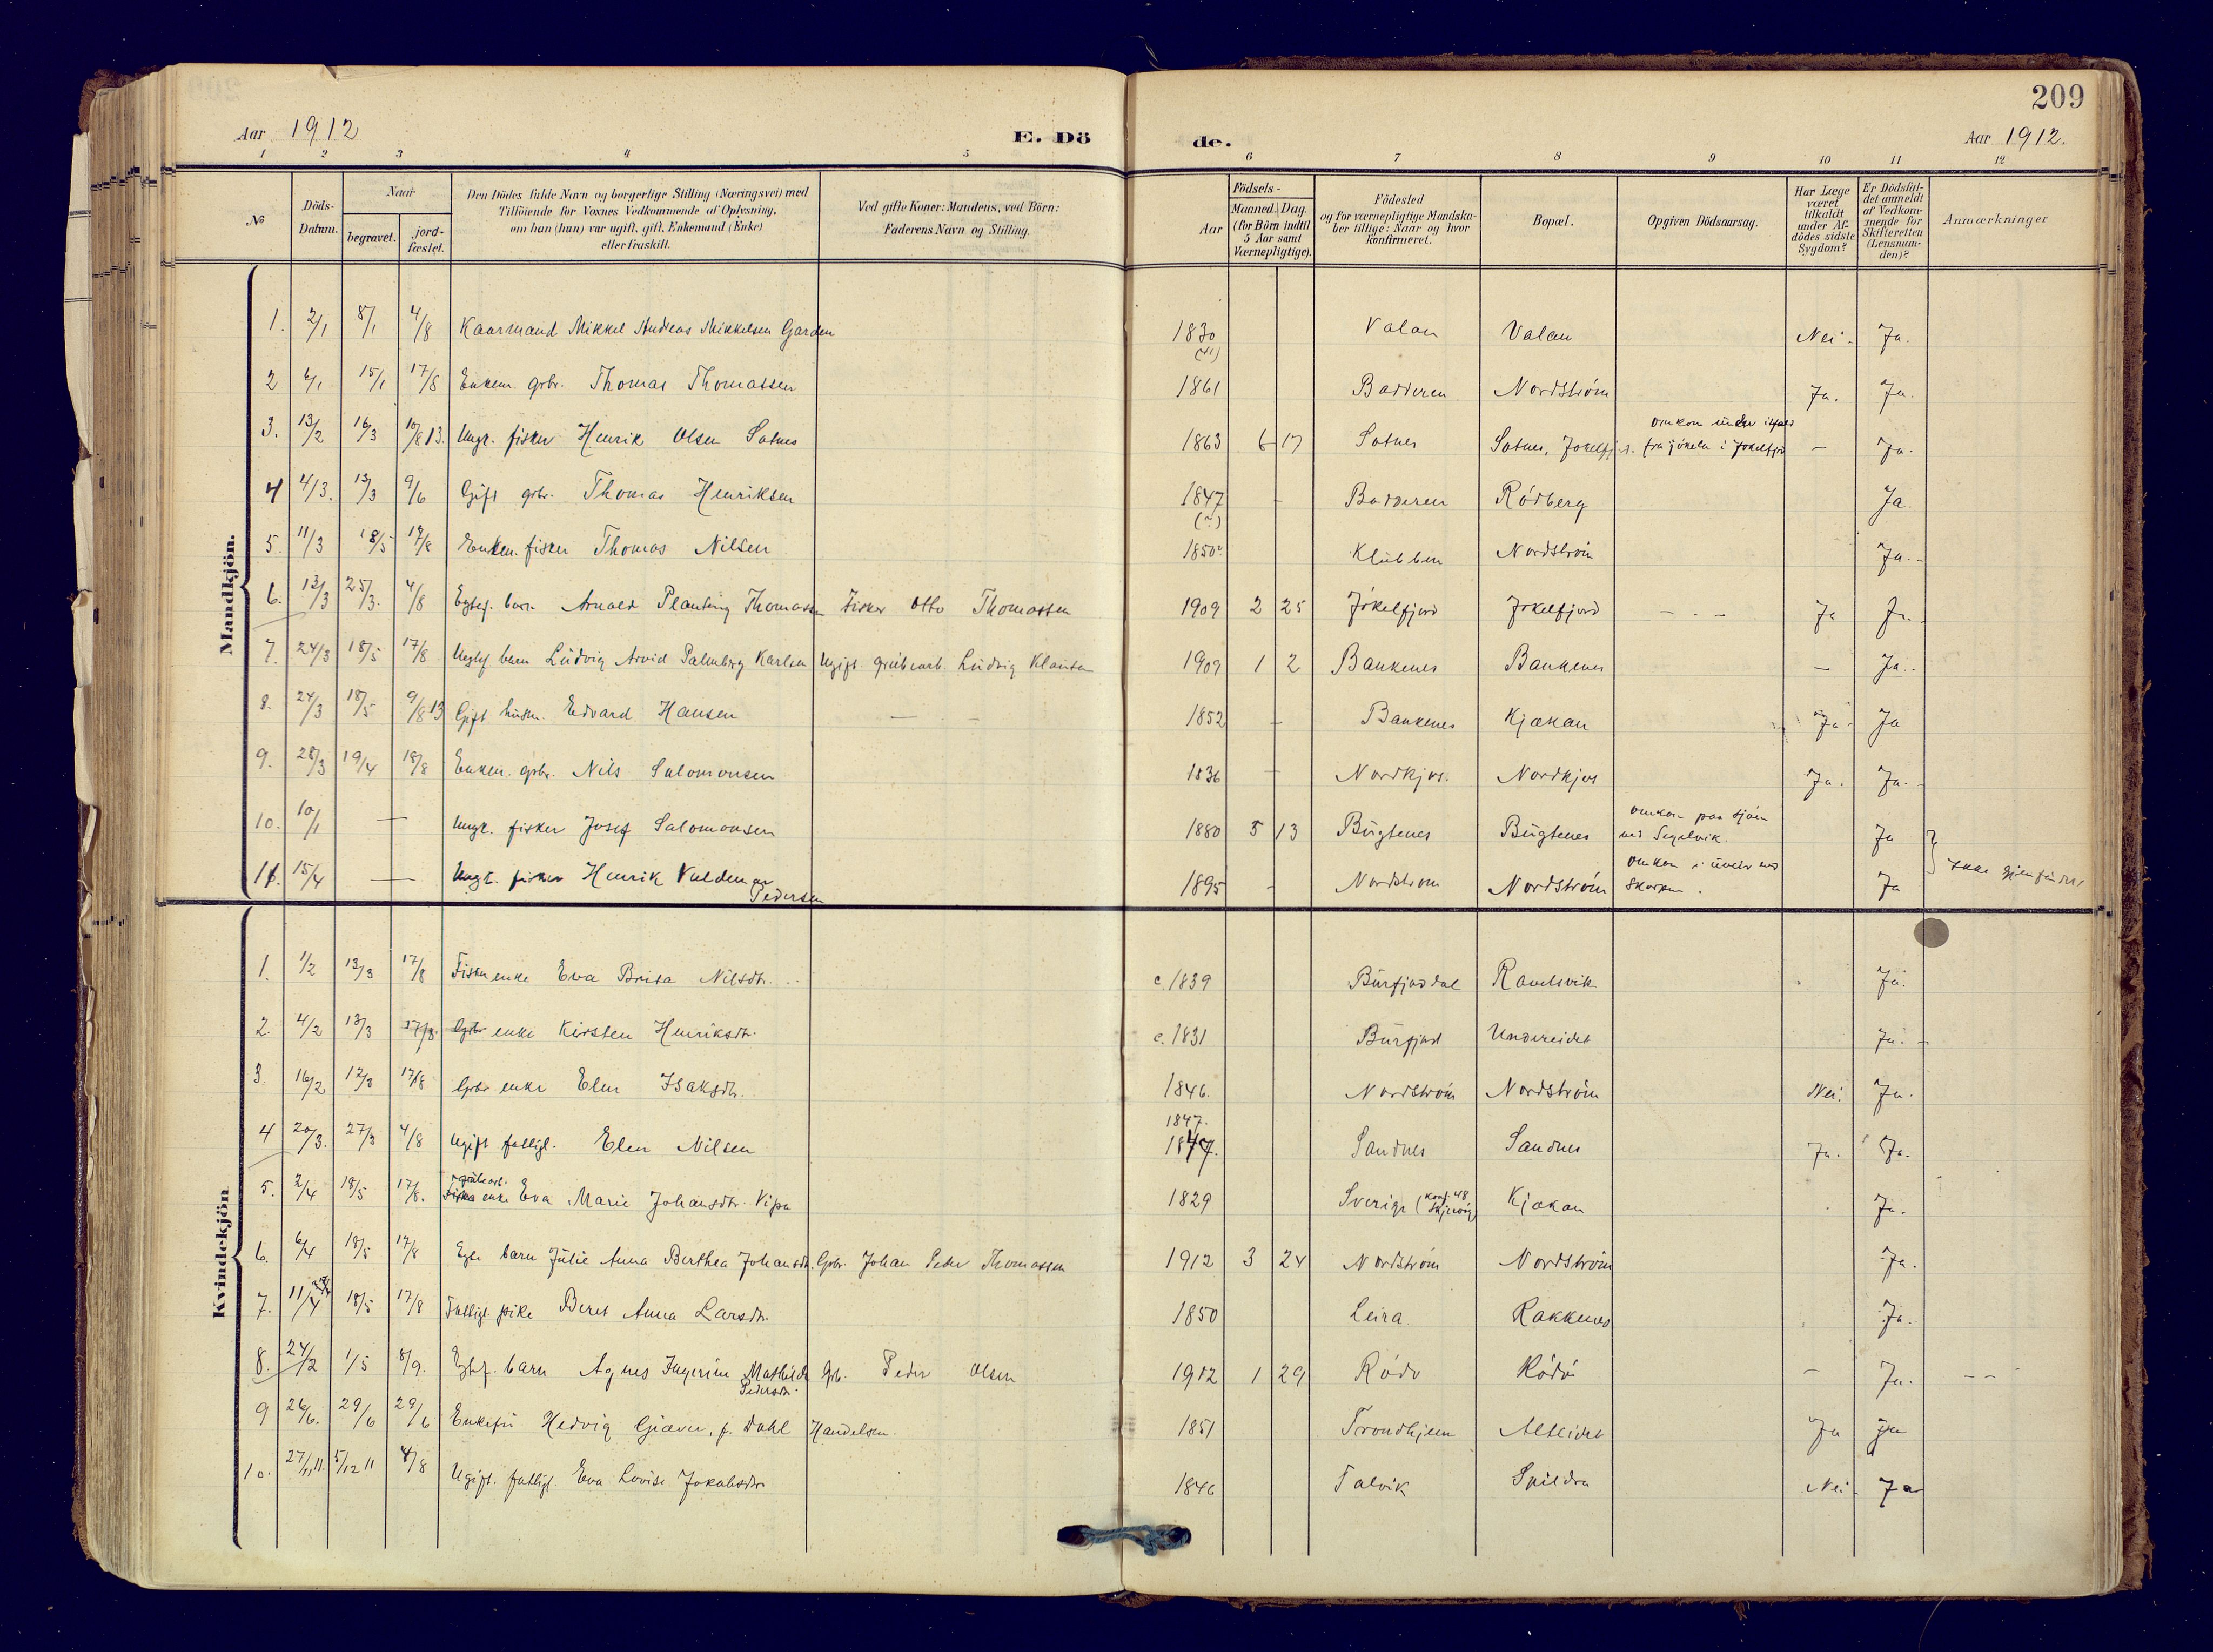 209
Aar 1912
E. Dö de.
Aar 1912.
1 2 3 4 5 6 7 8 9 10 11 12
No
Döds-Datum.
Naar
begravet.
jord-fæstet.
Den Dödes fulde Navn og borgerlige Stilling (Næringsvei) med
Tilföiende for Voxnes Vedkommende af Oplysning,
om han (hun) var ugift, gift, Enkemand (Enke)
eller fraskilt.
Ved gifte Koner: Mandens, ved Börn:
Faderens Navn og Stilling.
Aar
Födsels-
Maaned. Dag
(for Börn indtil
5 Aar samt
Værnepligtige).
Födested
og for værnepligtige Mandska-
ber tillige: Naar og hvor
konfirmeret.
Bopæl.
Opgiven Dödsaarsag.
Har Læge
været
tilkaldt
under Af-
dödes sidste
Sygdom?
Er Dödsfal-
det anmeldt
af Vedkom-
mende for
Skifteretten
(Lensman-
den)?
Anmærkninger
Mandkjön.
1. 2/1 8/1 4/8 Kaarmand Mikkel Andreas Mikkelsen Garden 1830 Valan Valan Nei Ja.
2 6/1 15/1 17/8 Enkem. grbr. Thomas Thomassen 1861 Badderen Nordström Ja. Ja.
3. 13/2 16/3 10/8 13. Ungk. fisker Henrik Olsen Satnes 1863 6 17 Satnes Satnes, Jökelfj. omkom under isfald
fra jökelen i Jökelfjd - Ja.
4 4/3. 13/3 9/6 Gift grbr. Thomas Henriksen 1847 (?) - Badderen Rödberg Ja.
5. 11/3 18/5 17/8 Enkem. fisker Thomas Nilsen 1850 Klubben Nordström Ja.
6. 13/3 25/3. 4/8 Egtef. barn Arnald Planting Thomassen Fisker Otto Thomassen 1909 2 25 Jökelfjord Jökelfjord - . - Ja Ja.
7. 24/3 18/5 17/8 Uegtef barn Ludvig Arvid Palmberg Karlsen Ugift grubearb. Ludvig Klausen 1909 1 2 Bankenes Bankenes - Ja.
8. 24/3 18/5 9/8 13 Gift husm. Edvard Hansen - - 1852 - Bankenes Kjækan Ja. Ja
9. 28/3 19/4 18/8 Enkem. grbr. Nils Salomonsen 1836 - Nordkjos. Nordkjos Ja. Ja.
10. 10/1 - Ungk. fisker Josef Salomonsen 1880 5 13 Bugtenes Bugtenes omkom paa sjöen
ved Segelvik. Ja
11. 15/4 - Ungk. fisker Henrik Valdemar
Pedersen 1895 - Nordström Nordström omkom i uveir ved
Ja } Ikke gjenfundne
Kvindekjön
1. 1/2 13/3 17/8 Fisker enke Eva Brita Nilsdtr. c. 1839 Burfjorddal Ravelsvik Ja.
2. 4/2 13/3 17/8. Grbr enke Kirsten Henriksdtr. c. 1831 Burfjord Undereidet Ja.
3. 16/2 12/3 17/8 Grbr enke Elen Isaksdtr. 1846. Nordström Nordström Nei. Ja.
4 20/3. 27/3 4/8 Ugift fattigl. Elen Nilsen 1847.
1847. Sandnes Sandnes Ja. Ja.
5. 2/4 18/5 17/8. grubearb.
enke Eva Marie Johansdtr. Vipa 1829 Sverige (konf. 48
Skjervøy) Kjækan Ja.
6. 6/4 18/5 17/8 Egte barn Julie Anna Berthea Johansdtr. Grbr. Johan Peder Thomassen 1912 3 24 Nordström Nordström Ja.
7. 11/4 18/5 17/8 Fattigl pike Beret Anna Larsdtr. 1850 Leira Rakkenes Ja.
8. 24/2 1/5 8/9. Egtef. barn Agnes Ingerine Mathilde
Pedersdtr. Grb. Peder Olsen 1912 1 29 Rödö Rödö - Ja. - -
9 26/6. 29/6 29/6 Enkefru Hedvig Giæver, f. Dahl Handelsm. 1851 Trondhjem Alteidet Ja Ja
10. 27/11 11. 5/12 11 4/8 Ugift. fattigl. Eva Lovise Jokabsdtr. 1846 Talvik Spildra Nei Ja